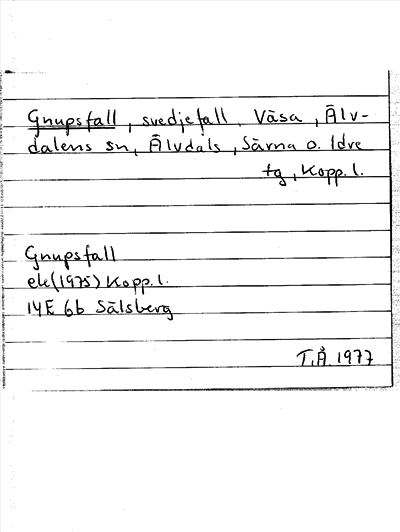 Gnupsfall, svedjefall, Våsa, Älv-
dalens sn, Älvdals, Särna o. Idre
tg, Kopp. l.
Gnupsfall
ek (1975) Kopp. l.
14E 6b Sälsberg
T.Å. 1977